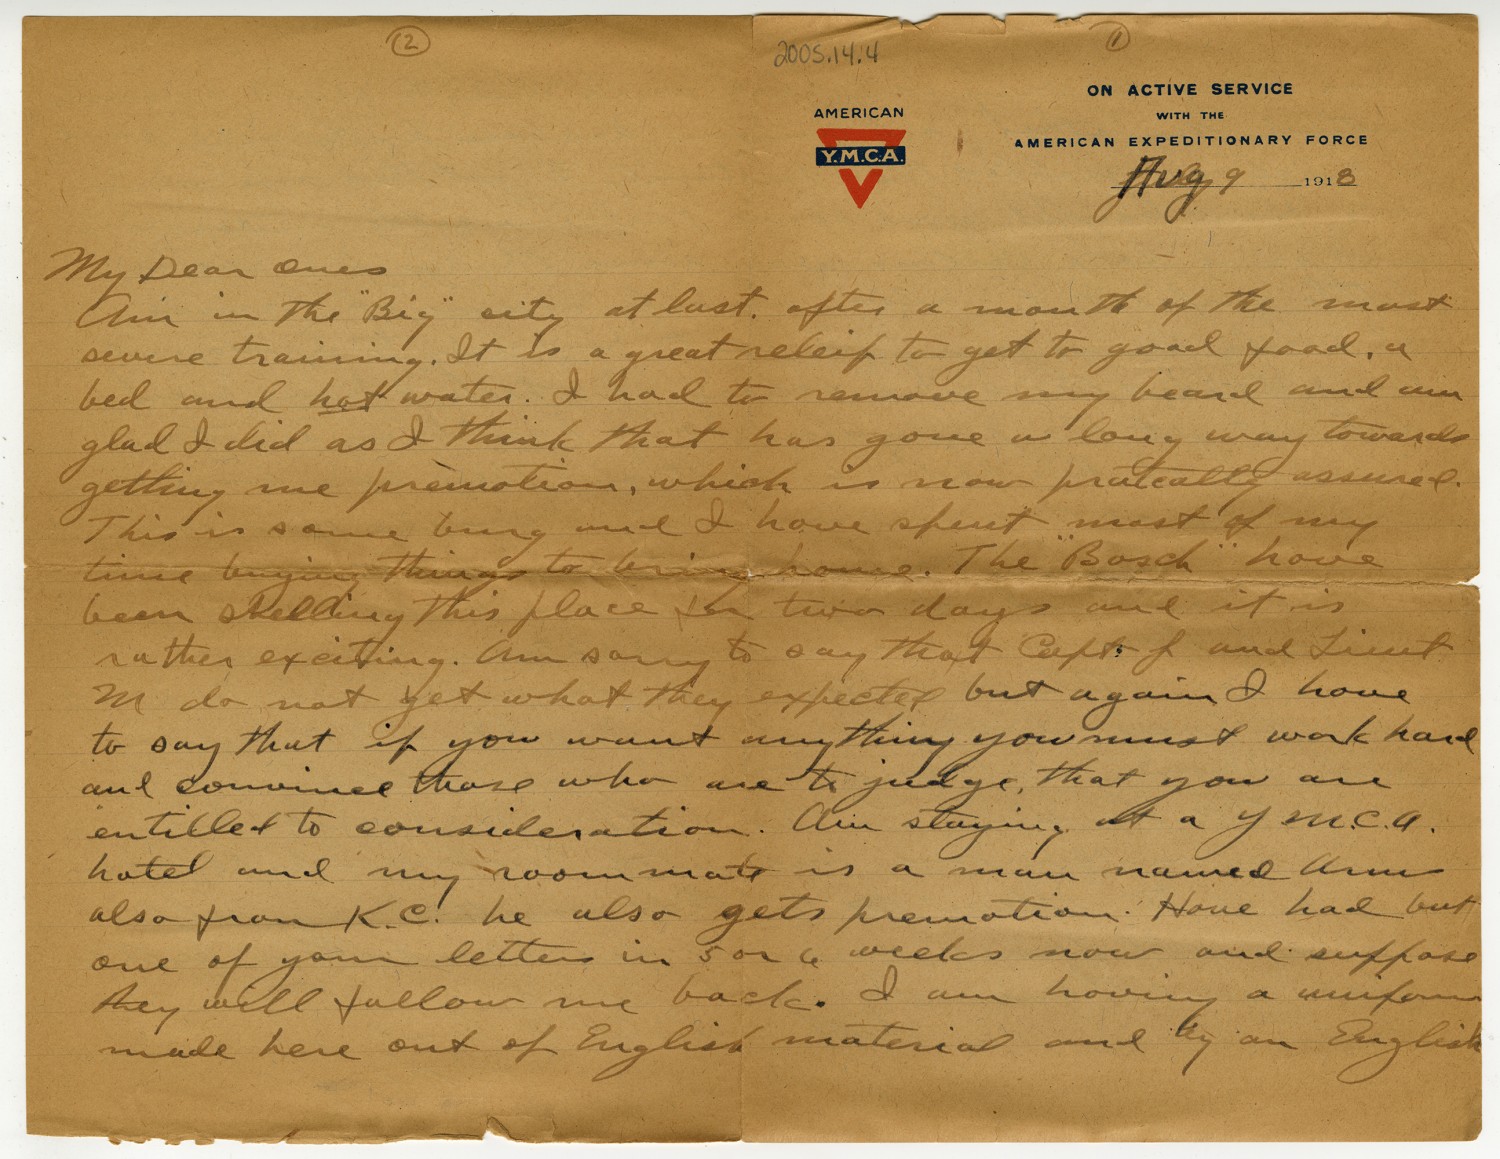 2
1
2005.14.4
AMERICAN
Y.M.C.A.
ON ACTIVE SERVICE
WITH THE
AMERICAN EXPEDITIONARY FORCE
Aug 9 1918
My Dear Ones
Am in the "Big" city at last. after a month of the most
severe training. It is a great releif to get to good food, a
bed and hot water. I had to remove my beard and am
glad I did as I think that has gone a long way towards
getting me premotion, which is now pratically assured.
This is some burg and I have spent most of my
time buying things to bring home. The "Bosch" have
been shelling this place for two days and it is
rather exciting. Am sorry to say that Capt. J and Lieut
M do not get what they expected but again I have
to say that if you want anything you must work hard
and convince those who are to judge, that you are
entitled to consideration. Am staying at a Y M.C.A.
hotel and my roommate is a man named Arms
also from K.C. he also gets premotion. Have had but
one of your letters in 5 or 6 weeks now and suppose
they will follow me back. I am having a uniform
made here out of English material and by an English